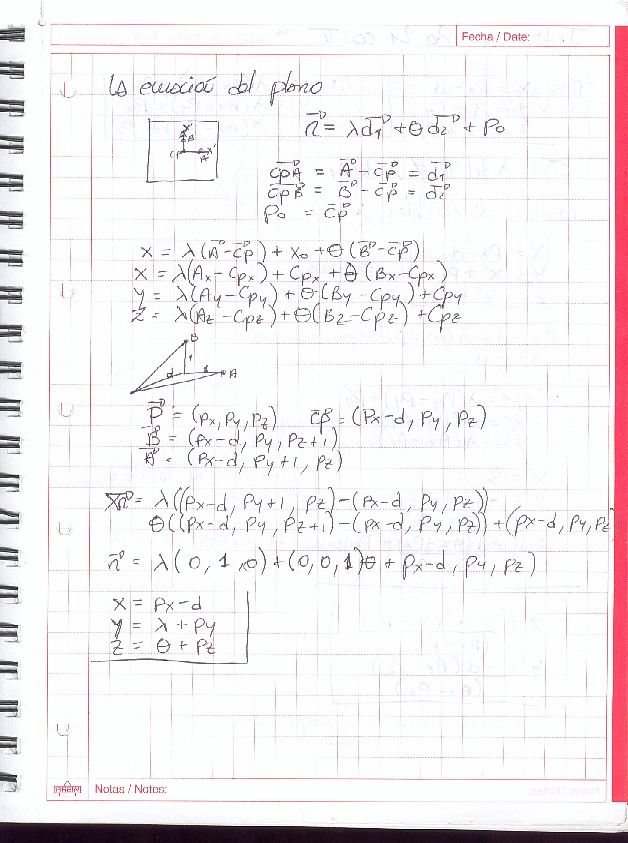 Fecha / Date:
La ecuación del plano
r⃗ = λd₁⃗ + θd₂⃗ + P₀
X'
B
Cp
X'
A
CpA⃗ = A⃗ - Cp⃗ = d₁⃗
CpB⃗ = B⃗ - Cp⃗ = d₂⃗
P₀ = Cp⃗
X = λ(A⃗-Cp⃗) + X₀ + θ(B⃗-Cp⃗)
X = λ(Ax-Cpx) + Cpx + θ(Bx-Cpx)
Y = λ(Ay-Cpy) + θ(By-Cpy) + Cpy
Z = λ(Az-Cpz) + θ(Bz-Cpz) + Cpz
B
1
d
1
A
P⃗ = (Px, Py, Pz) Cp⃗ = (Px-d, Py, Pz)
B⃗ = (Px-d, Py, Pz+1)
A⃗ = (Px-d, Py+1, Pz)
r⃗ = λ((Px-d, Py+1, Pz)-(Px-d, Py, Pz))-
θ((Px-d, Py, Pz+1)-(Px-d, Py, Pz)) + (Px-d, Py, Pz
r⃗ = λ(0, 1, 0)+(0, 0, 1)θ + Px-d, Py, Pz)
X = Px-d
Y = λ + Py
Z = θ + Pz
Notas / Notes: